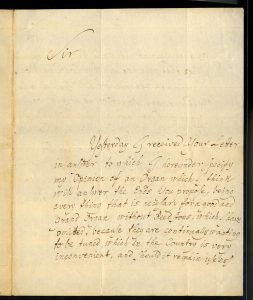 Sir
Yesterday I received Your Letter
in answer to which I hereunder specify
my Opinion of an Organ which I think
will answer the Ends You propose, being
every thing that is necessary for a good and
Grand Organ without Reed Stops, which I have
omitted, because they are continually wanting
to be tuned which in the Country is very
inconvenient, and should it remain useless